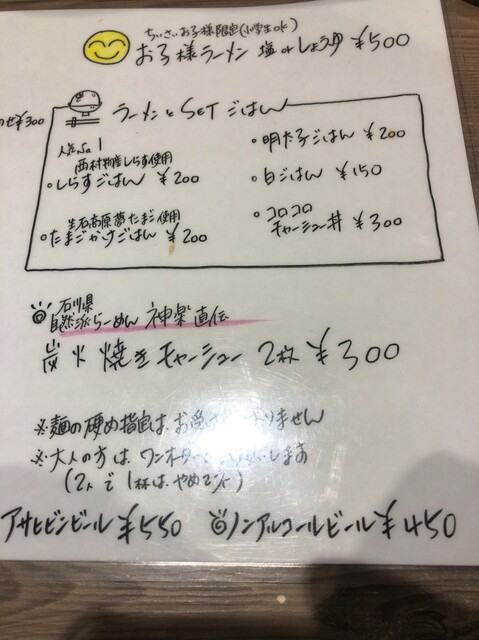 ちいさいお子様限定(小学生ok)
お子様ラーメン 塩orしょうゆ ¥500
のせ¥300
ラーメンとSETごはん
人気No.1
西村物産しらす使用
・しらすごはん ¥200
・明太子ごはん ¥200
・白ごはん ¥150
生石高原夢たまご使用
・たまごかけごはん ¥200
・コロコロ
チャーシュー丼 ¥300
石川県
自然派らーめん 神楽 直伝
炭火焼きチャーシュー 2枚 ¥300
※麺の硬め指定は、お受け りません
※大人の方は、ワンオーダー いします
(2人で1杯は、やめてントー)
アサヒビンビール ¥550
ノンアルコールビール ¥450